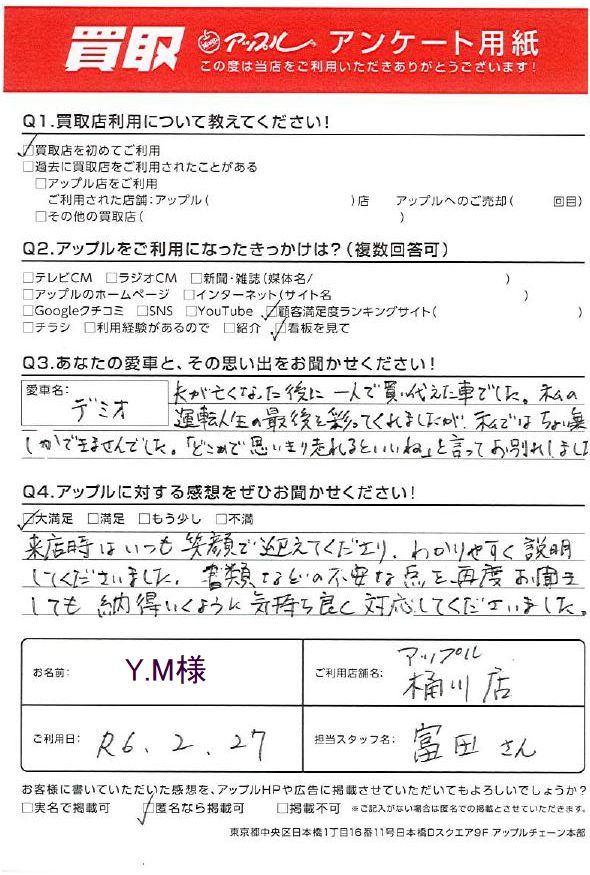 買取 アップル アンケート用紙
この度は当店をご利用いただきありがとうございます!
Q1.買取店利用について教えてください!
☑買取店を初めてご利用
□過去に買取店をご利用されたことがある
□アップル店をご利用
ご利用された店舗:アップル( )店 アップルへのご売却( 回目)
□その他の買取店( )
Q2.アップルをご利用になったきっかけは?(複数回答可)
□テレビCM □ラジオCM □新聞・雑誌(媒体名/ )
□アップルのホームページ □インターネット(サイト名 )
□Googleクチコミ □SNS □YouTube ☑顧客満足度ランキングサイト( )
□チラシ □利用経験があるので □紹介 ☑看板を見て
Q3.あなたの愛車と、その思い出をお聞かせください!
愛車名: デミオ
夫が亡くなった後に一人で買い代えた車でした。私の
運転人生の最後を彩ってくれましたが、私ではちょい乗
しかできませんでした。「どこかで思いきり走れるといいね」と言ってお別れしまし
Q4.アップルに対する感想をぜひお聞かせください!
☑大満足 □満足 □もう少し □不満
来店時はいつも笑顔で迎えてくださり、わかりやすく説明
してくださいました。書類などの不安な点を再度お聞き
しても納得いくように気持ち良く対応してくださいました。
お名前: Y.M様
ご利用店舗名: アップル
桶川店
ご利用日: R6.2.27
担当スタッフ名: 富田さん
お客様に書いていただいた感想を、アップルHPや広告に掲載させていただいてもよろしいでしょうか?
□実名で掲載可 ☑匿名なら掲載可 □掲載不可 ※ご記入がない場合は匿名での掲載とさせていただきます。
東京都中央区日本橋1丁目16番11号日本橋Dスクエア9F アップルチェーン本部